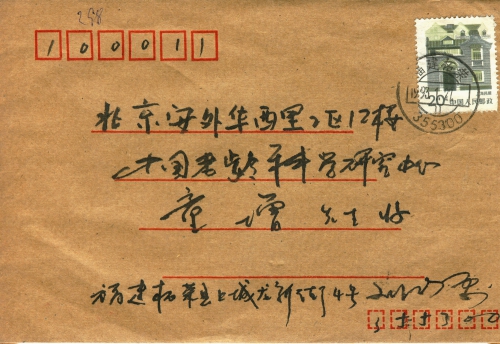 298
100011
北京安外华西里2区12楼
中国老龄科学研究中心
童增先生收
福建柘荣县上城龙新街4号
355300
20
中国人民邮政
355300